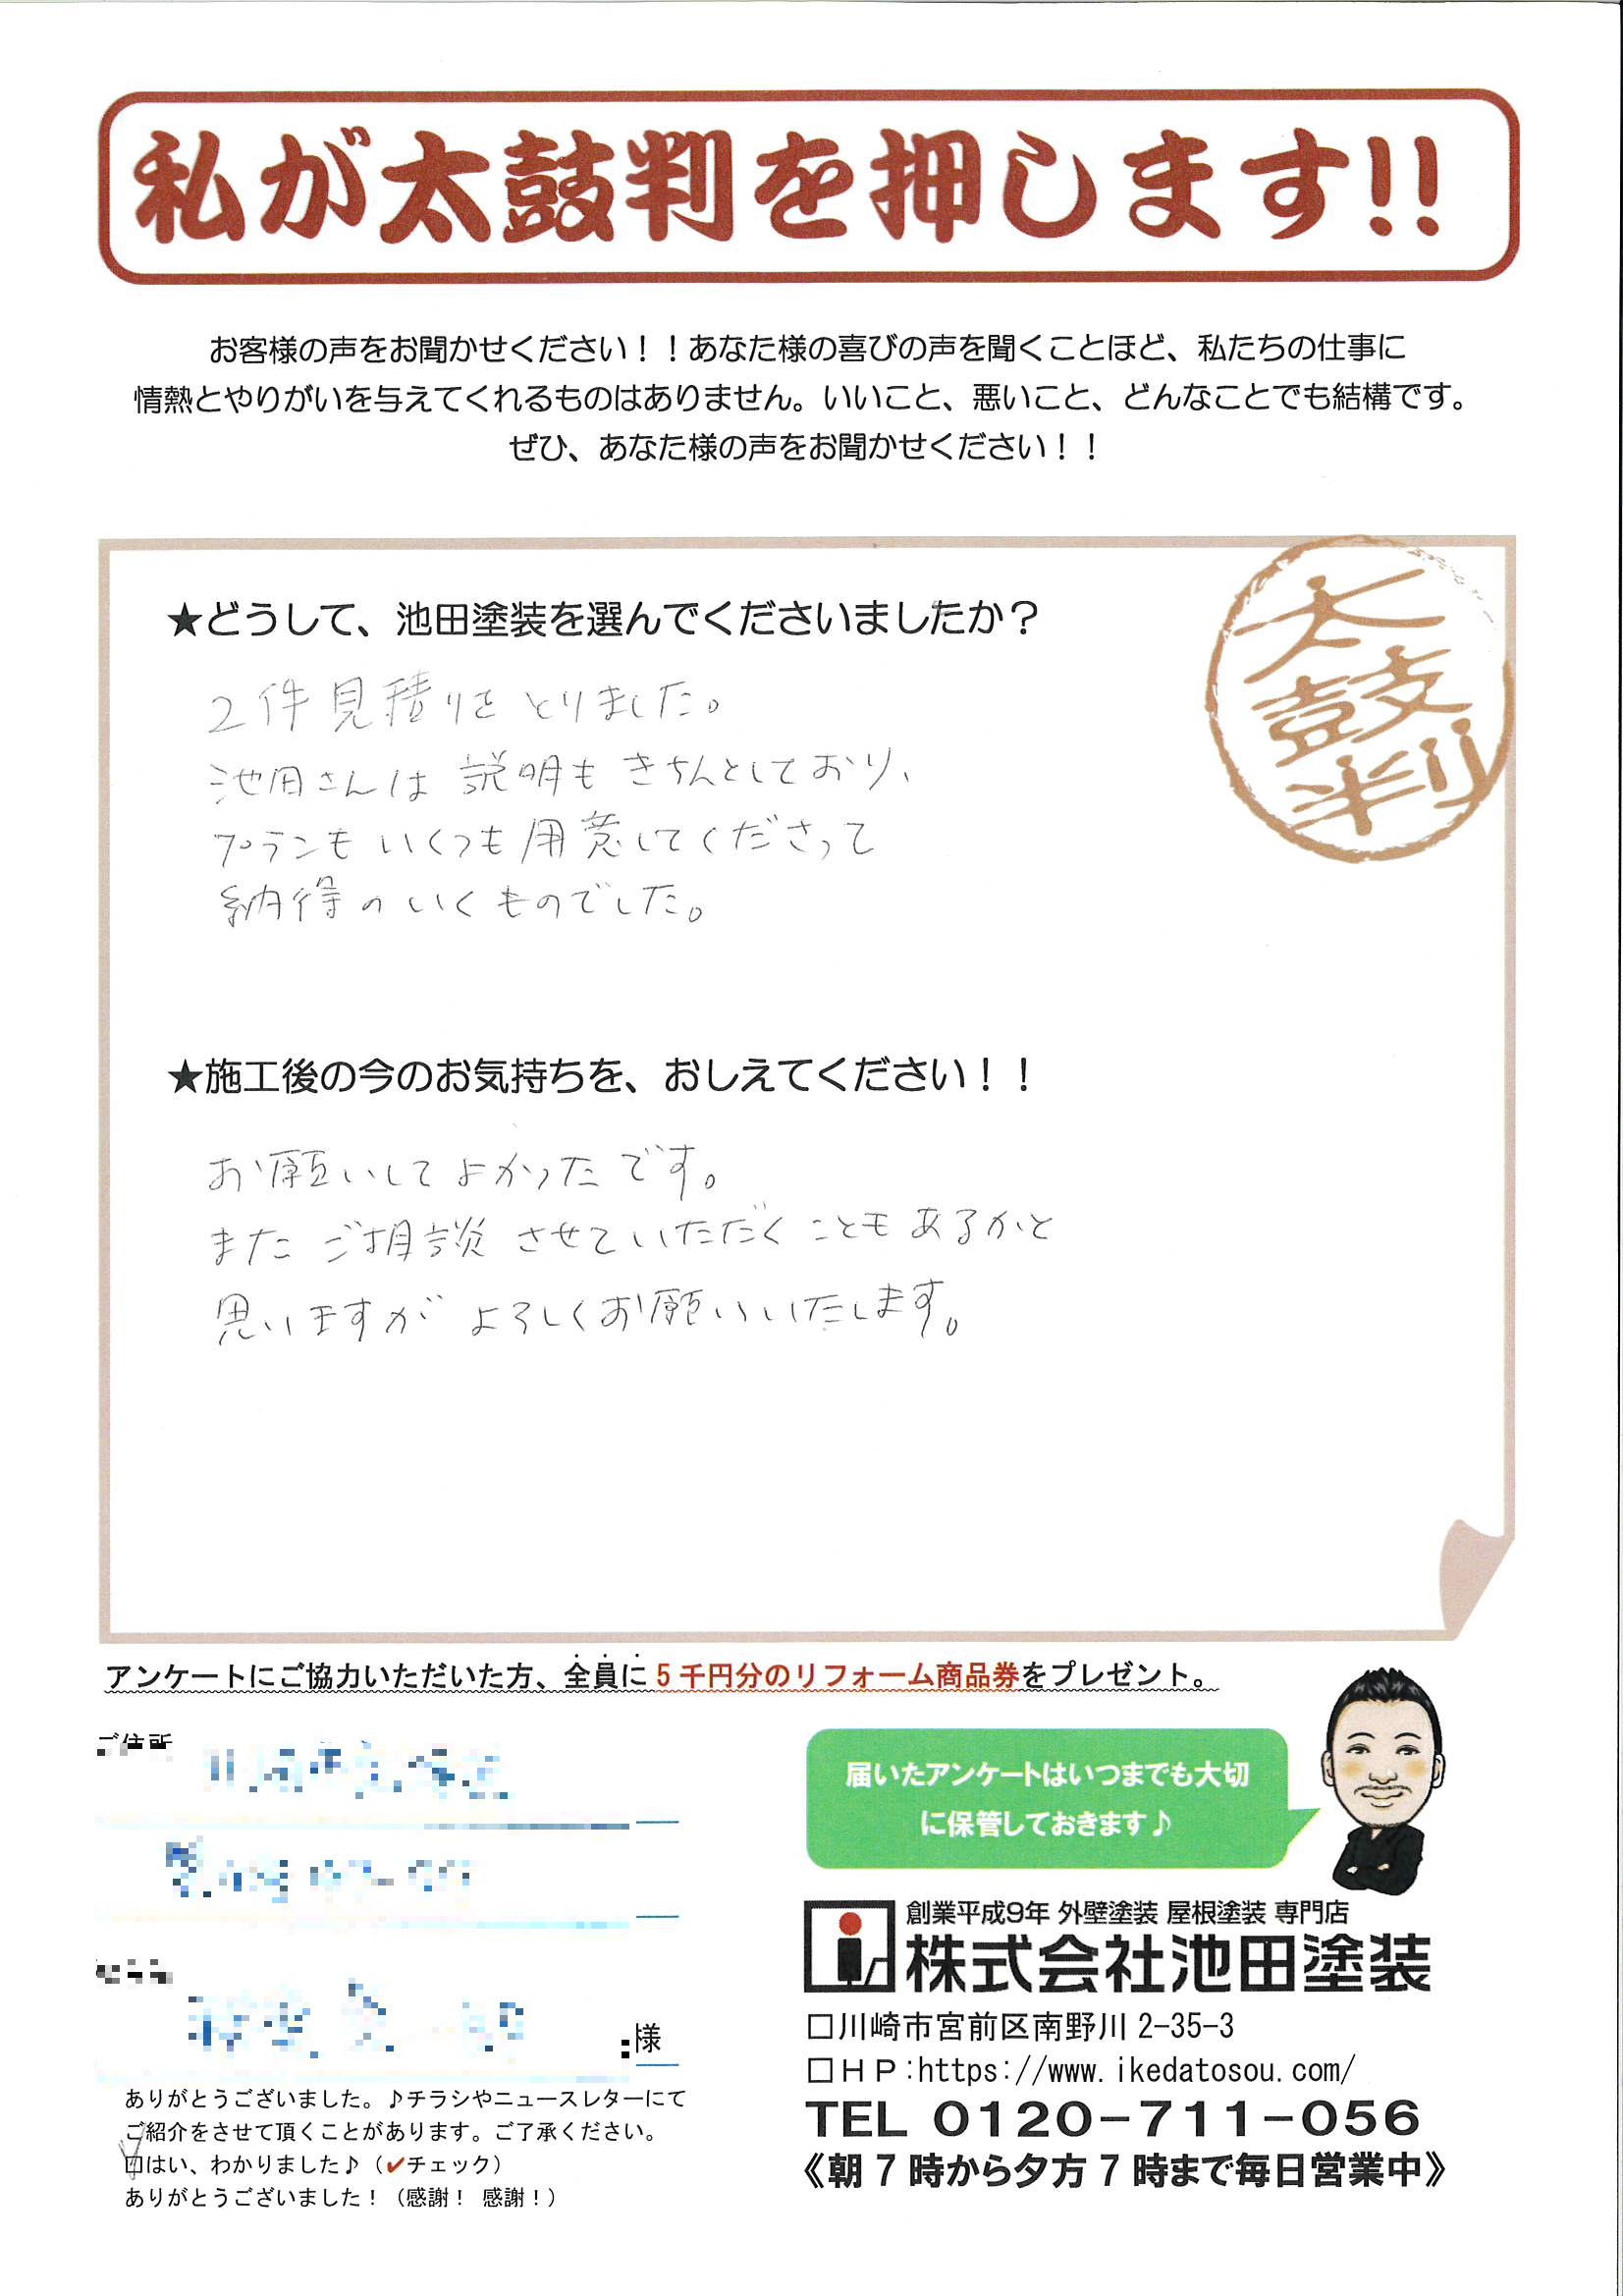 私が太鼓判を押します!!
お客様の声をお聞かせください！！あなた様の喜びの声を聞くことほど、私たちの仕事に
情熱とやりがいを与えてくれるものはありません。いいこと、悪いこと、どんなことでも結構です。
ぜひ、あなた様の声をお聞かせください！！
太鼓判
★どうして、池田塗装を選んでくださいましたか？
2件見積りをとりました。
池田さんは説明もきちんとしており、
プランもいくつも用意してくださって
納得のいくものでした。
★施工後の今のお気持ちを、おしえてください！！
お願いしてよかったです。
またご相談させていただくこともあるかと
思いますがよろしくお願いいたします。
アンケートにご協力いただいた方、全員に5千円分のリフォーム商品券をプレゼント。
ご住所
様
ありがとうございました。♪チラシやニュースレターにて
ご紹介をさせて頂くことがあります。ご了承ください。
□はい、わかりました♪（✔チェック）
ありがとうございました！（感謝！感謝！）
届いたアンケートはいつまでも大切
に保管しておきます♪
創業平成9年 外壁塗装 屋根塗装 専門店
株式会社池田塗装
□川崎市宮前区南野川2-35-3
□ＨＰ:https://www.ikedatosou.com/
TEL 0120-711-056
《朝7時から夕方7時まで毎日営業中》